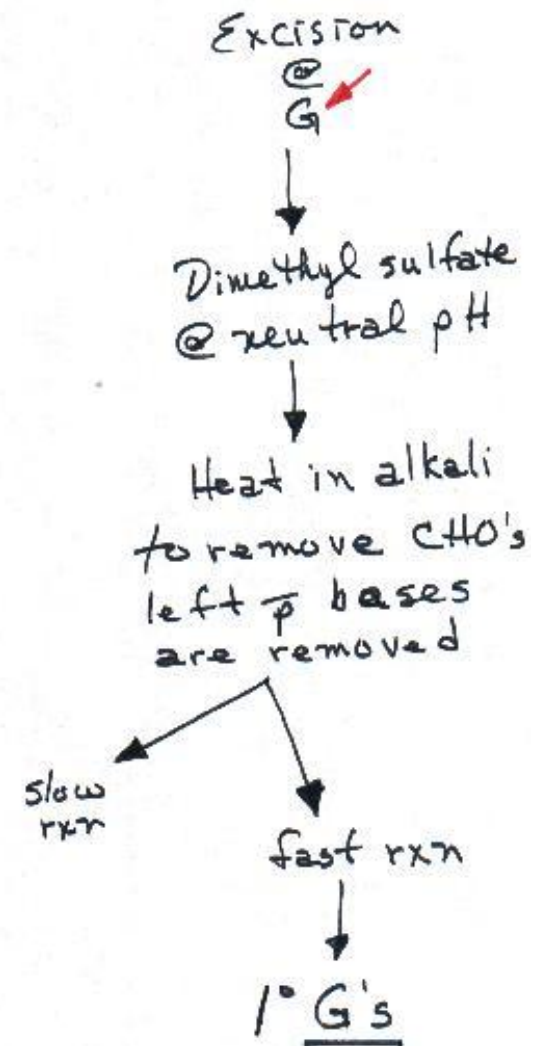 Excision
@
G
Dimethyl sulfate
@ neutral pH
Heat in alkali
to remove CHO's
left p̄ bases
are removed
slow
rxn
fast rxn
1° G's